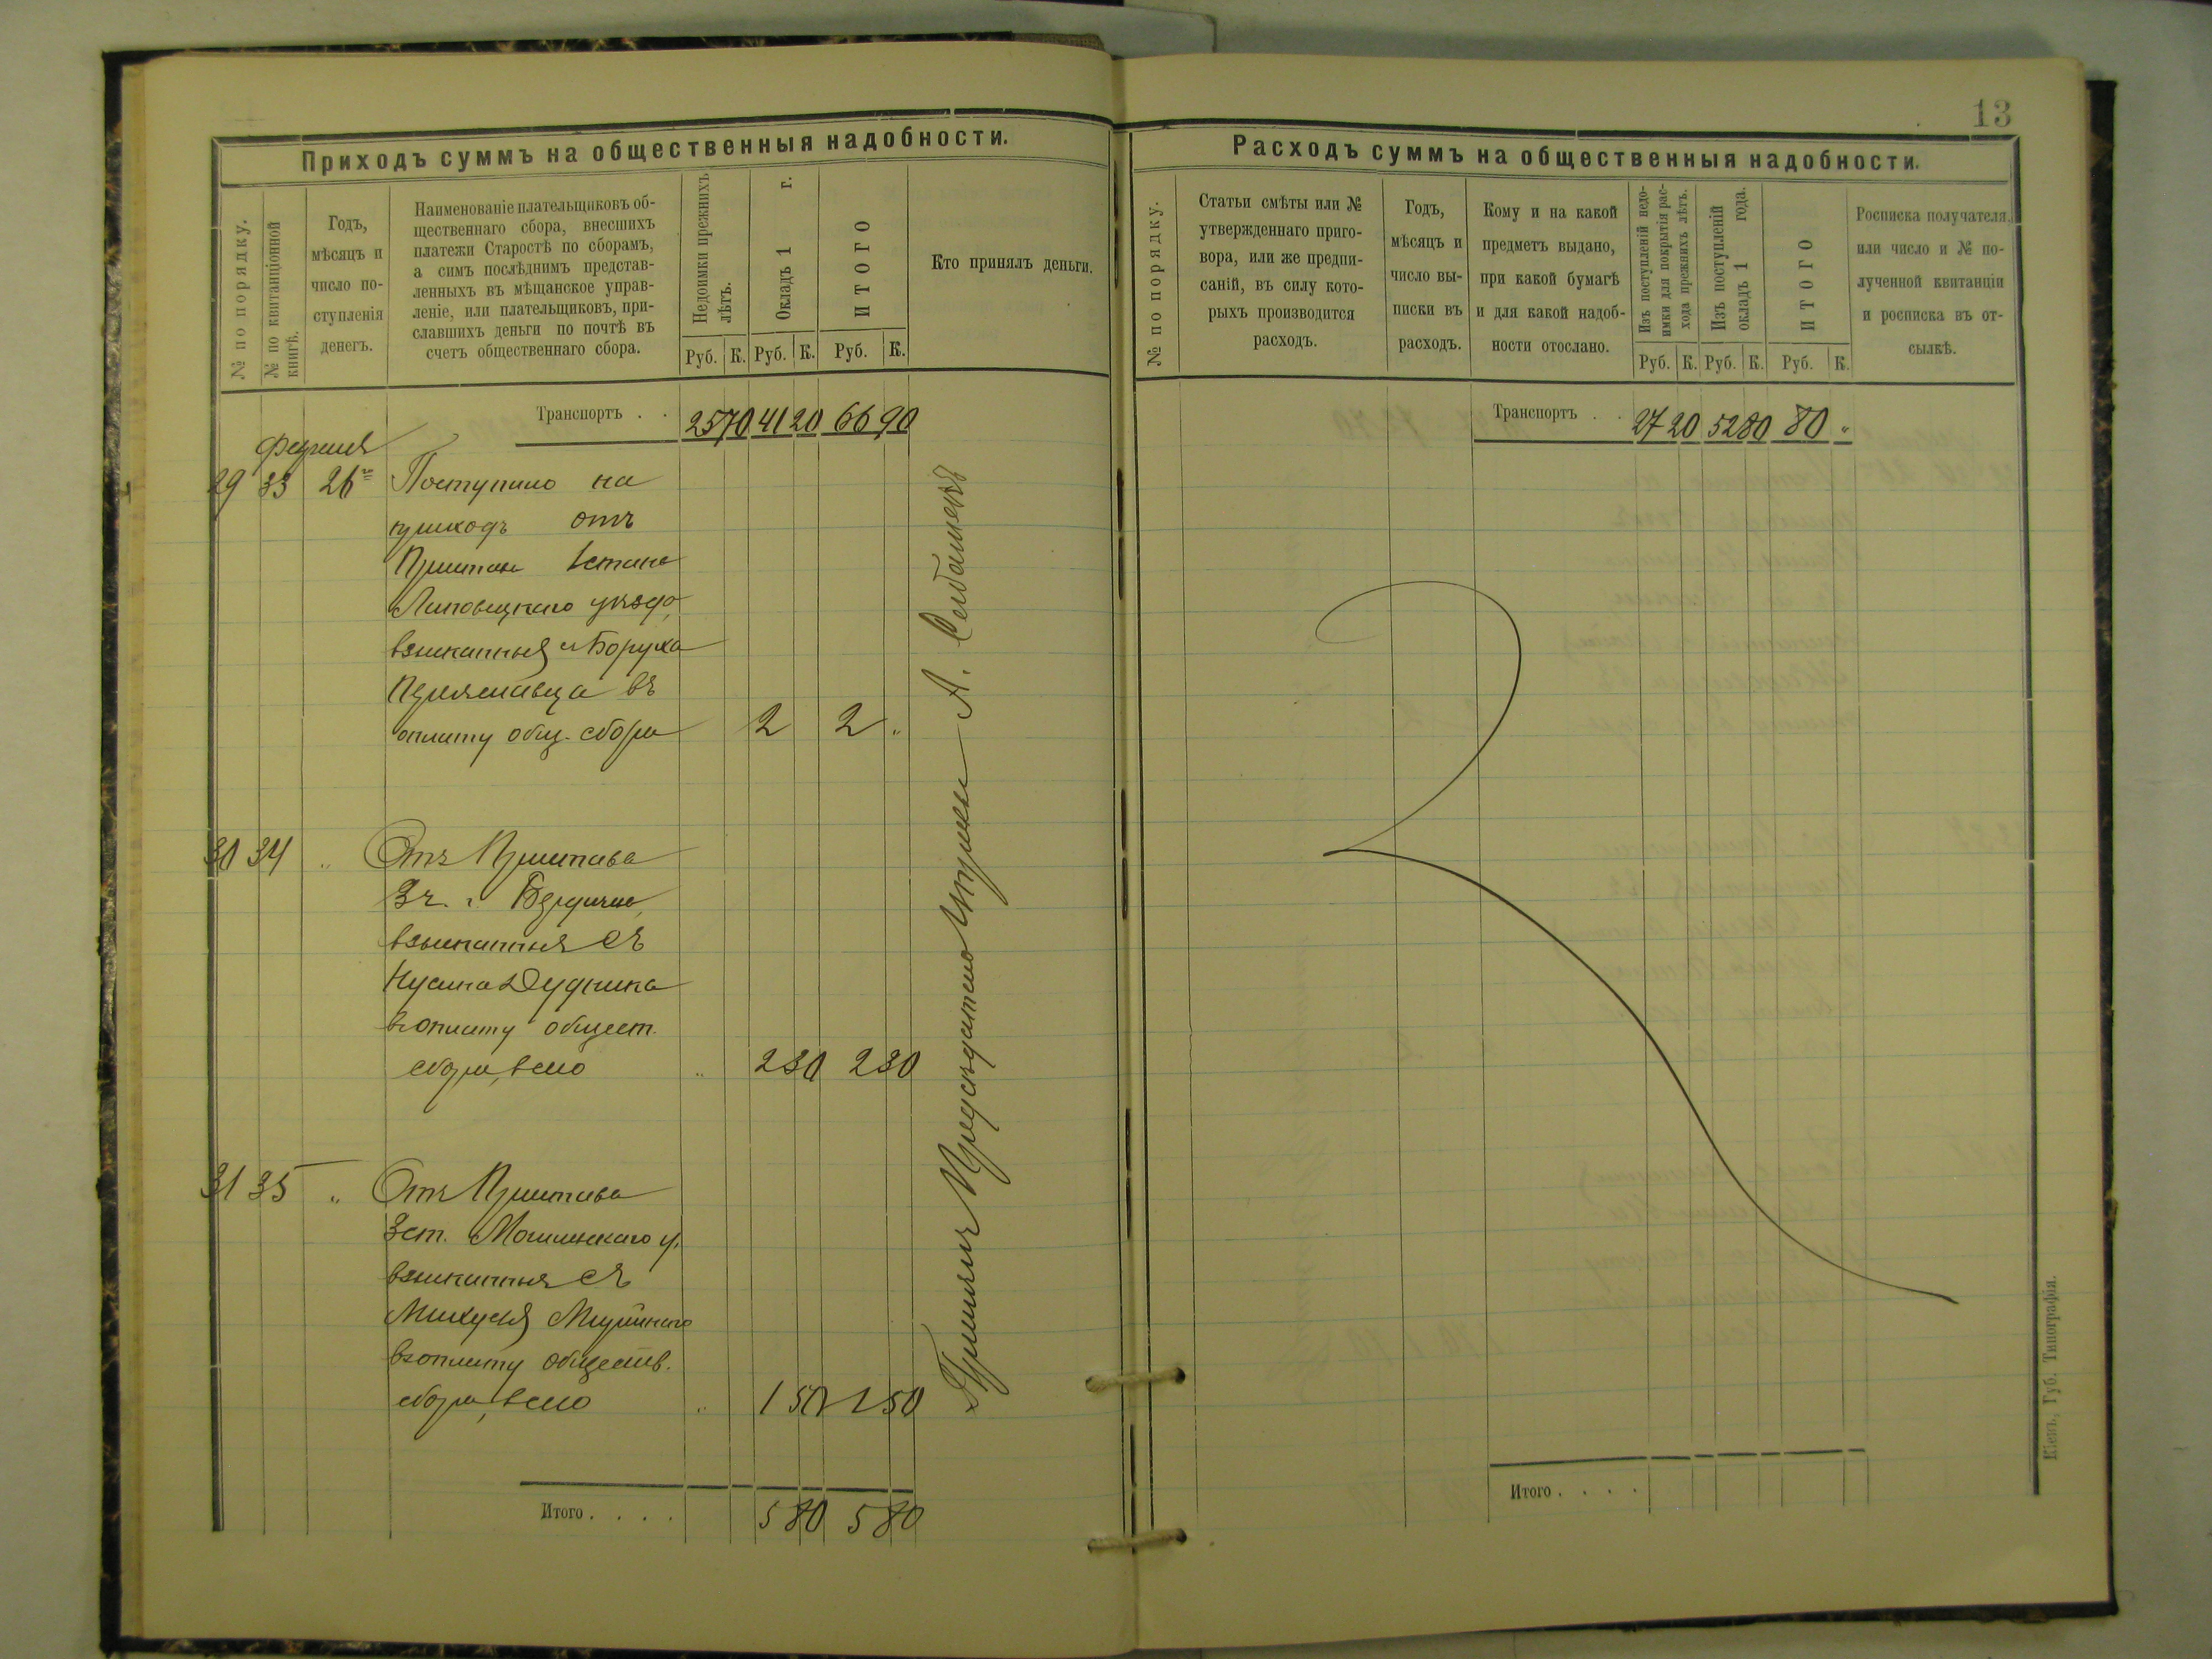 13
Приходъ суммъ на общественныя надобности.
№ по порядку.
№ по квитанціонной
книгѣ.
Годъ,
мѣсяцъ и
число по-
ступленія
денегъ.
Наименованіе плательщиковъ об-
щественнаго сбора, внесшихъ
платежи Старостѣ по сборамъ,
а симъ послѣднимъ представ-
ленныхъ въ мѣщанское управ-
леніе, или плательщиковъ, при-
славшихъ деньги по почтѣ въ
счетъ общественнаго сбора.
Недоимки прежнихъ
лѣтъ.
Окладъ 1 г.
ИТОГО
Кто принялъ деньги.
Руб. К. Руб. К. Руб. К.
Транспортъ . . 25 70 41 20 66 90
29 33 26 Поступило на
приходъ отъ
Пристава 1 стана
Липовецкаго уѣзда,
взысканныя съ Боруха
въ
оплату общ. сбора 2 2 „
30 34 „ Отъ Пристава
3 ч. г. Бердичева,
взысканныя съ
Нусина Дудника
въ оплату общест.
сбора, всего „ 2 30 2 30
31 35 „ Отъ Пристава
3 ст. у.
взысканныя съ
въ оплату обществ.
сбора, всего „ 1 50 1 50
Итого . . . . 5 80 5 80
Принялъ Предсѣдатель Управы А.
Расходъ суммъ на общественныя надобности.
№ по порядку.
Статьи смѣты или №
утвержденнаго приго-
вора, или же предпи-
саній, въ силу кото-
рыхъ производится
расходъ.
Годъ,
мѣсяцъ и
число вы-
писки въ
расходъ.
Кому и на какой
предметъ выдано,
при какой бумагѣ
и для какой надоб-
ности отослано.
Изъ поступленій недо-
имки для покрытія рас-
хода прежнихъ лѣтъ.
Изъ поступленій
окладъ 1 года.
ИТОГО
Росписка получателя,
или число и № по-
лученной квитанціи
и росписка въ от-
сылкѣ.
Руб. К. Руб. К. Руб. К.
Транспортъ . . 27 20 52 80 80 „
Итого . . . .
Кіевъ, Губ. Типографія.